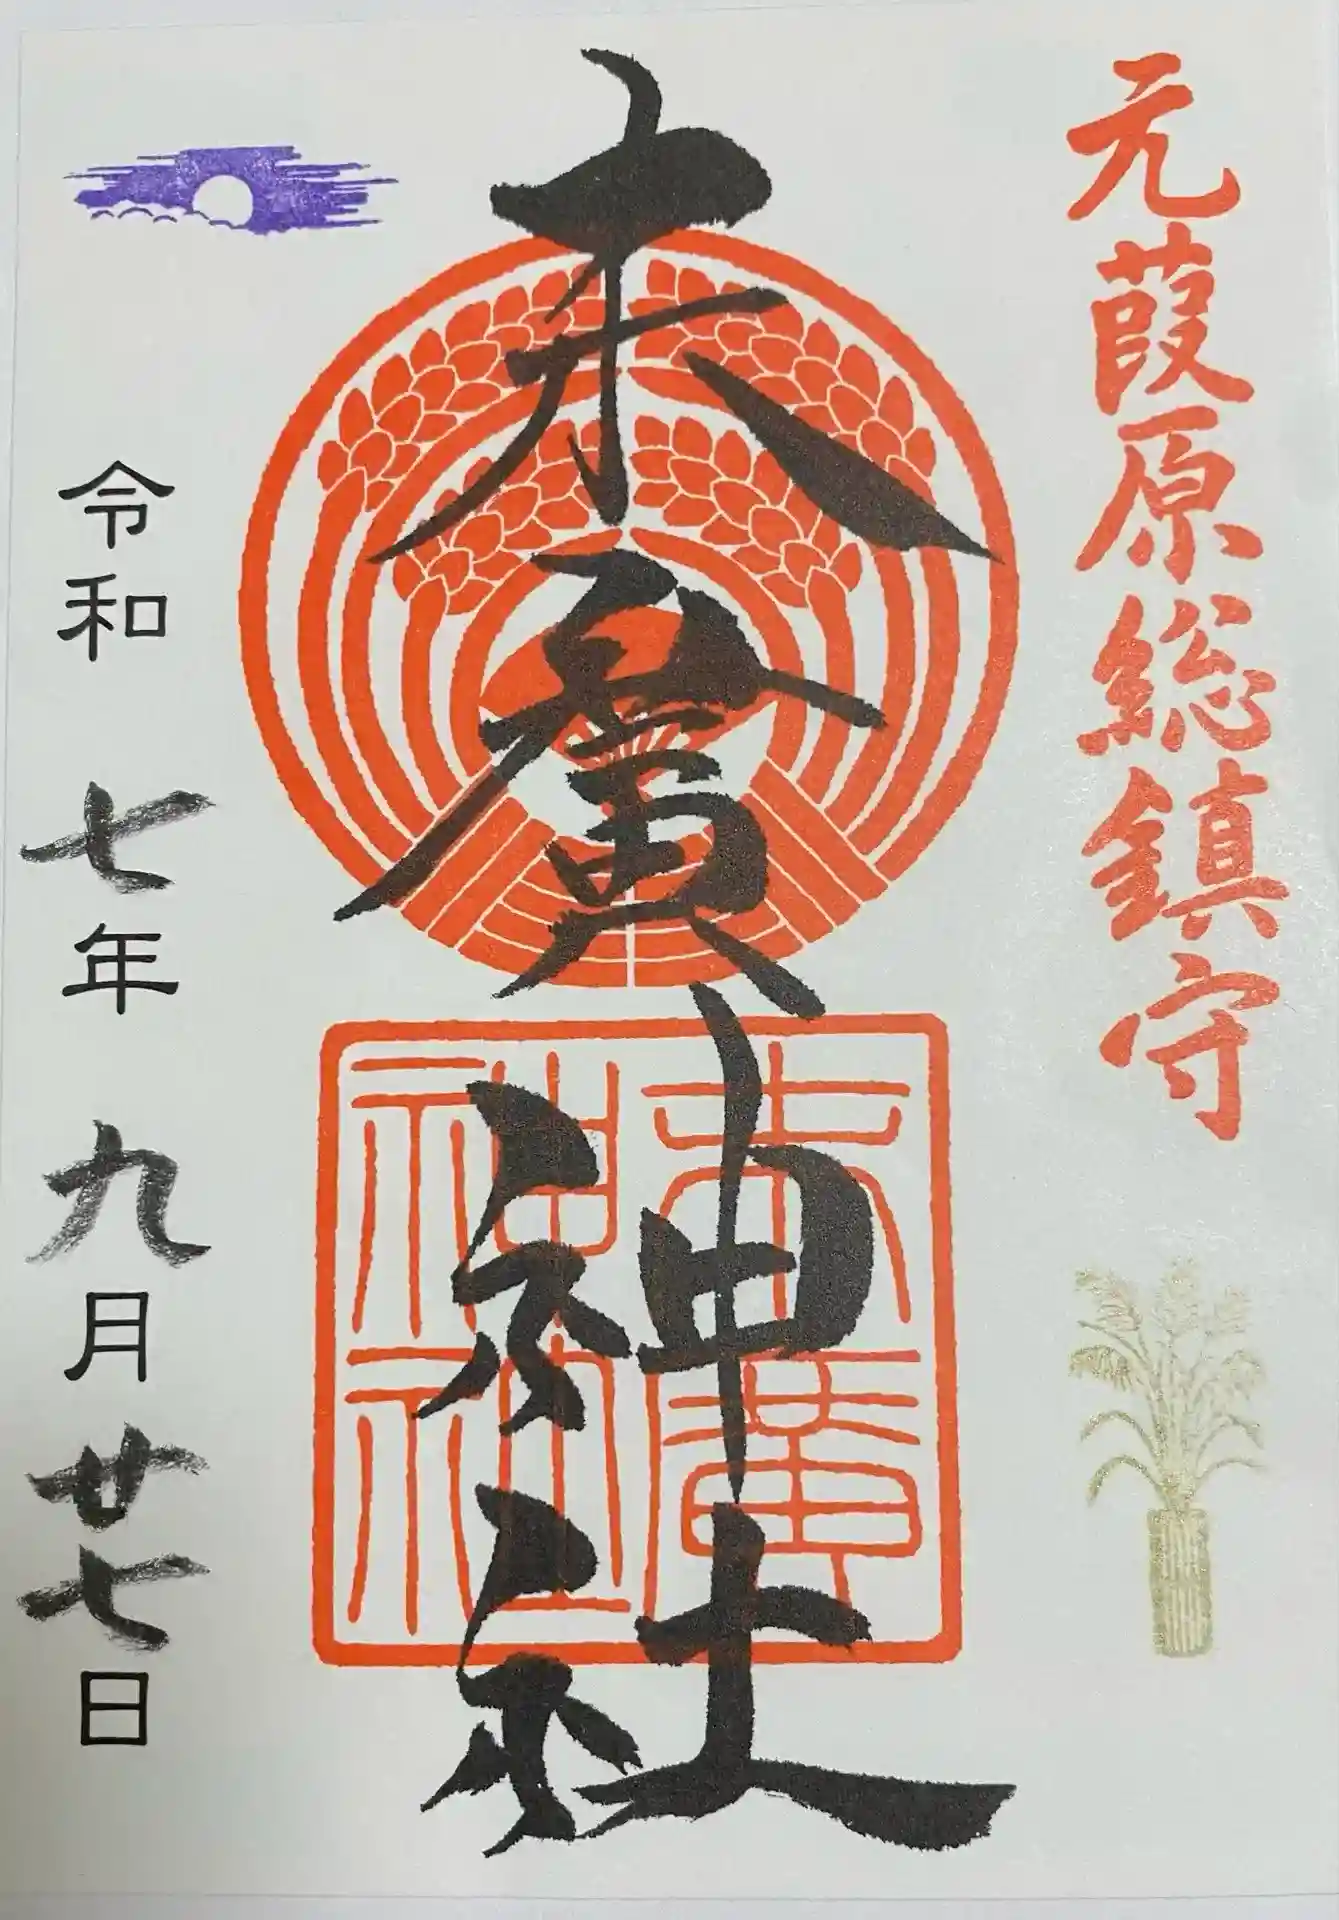 元葭原総鎮守
末廣神社
末廣
神社
令和 七年 九月 廿七日